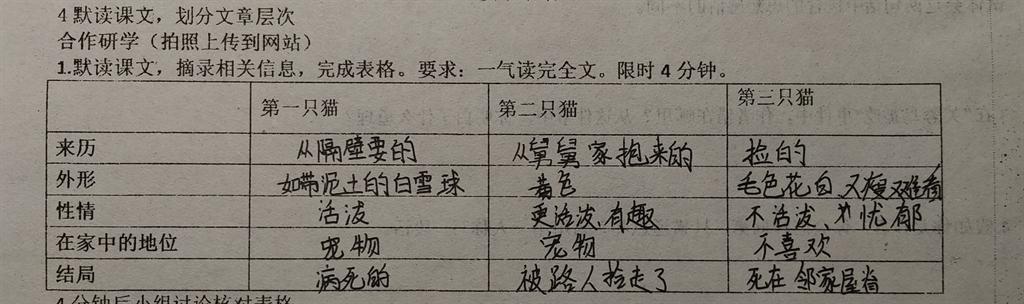 4 默读课文，划分文章层次
合作研学（拍照上传到网站）
1.默读课文，摘录相关信息，完成表格。要求：一气读完全文。限时 4 分钟。
第一只猫 第二只猫 第三只猫
来历 从隔壁要的 从舅舅家抱来的 捡的
外形 如带泥土的白雪球 黄色 毛色花白、又瘦又难看
性情 活泼 更活泼、有趣 不活泼、忧郁
在家中的地位 宠物 宠物 不喜欢
结局 病死的 被路人捡走了 死在邻家屋脊
4 分钟后小组讨论核对表格